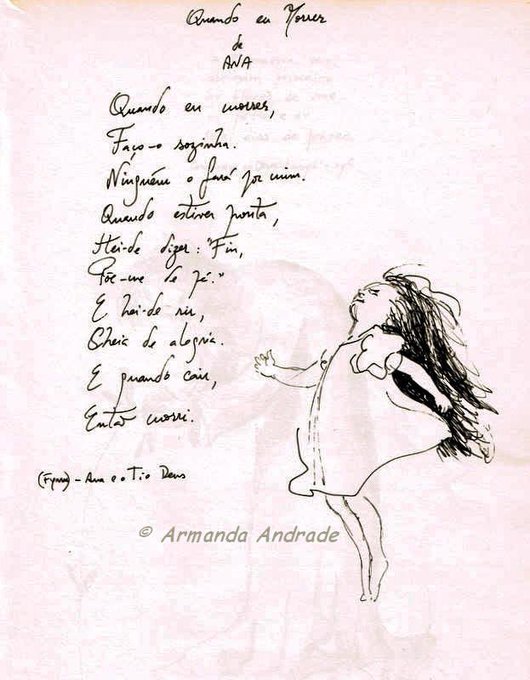 Quando eu Morrer
de
ANA
Quando eu morrer,
Faço-o sozinha.
Ninguém o fará por mim.
Quando estiver pronta,
Hei-de dizer: "Fin,
Põe-me de pé."
E hei-de rir,
Cheia de alegria.
E quando cair,
Então morri.
(Fynn) - Ana e o Tio Deus
© Armanda Andrade